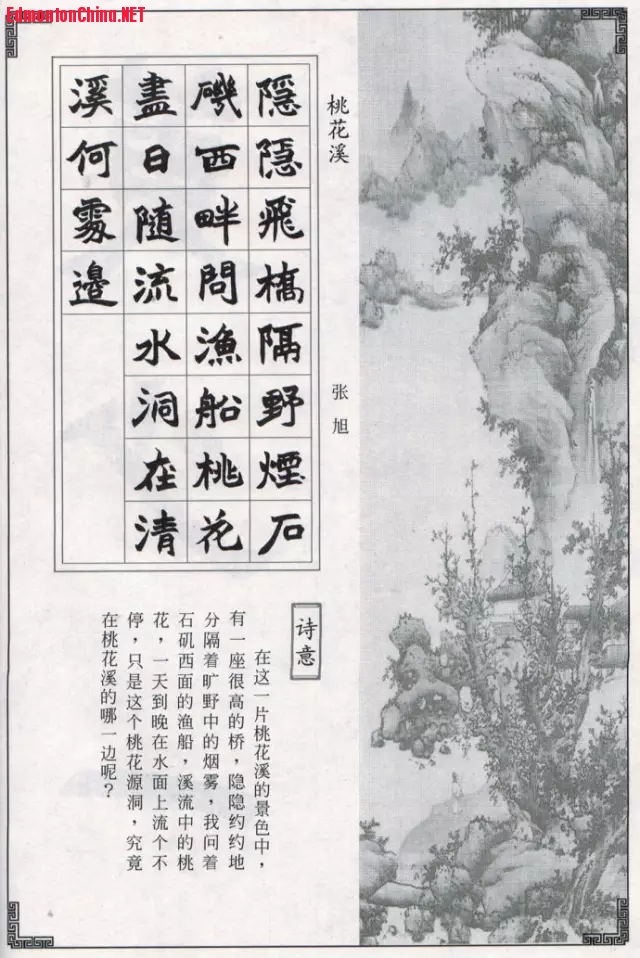 EdmontonChina.NET
桃花溪
张旭
隱隱飛橋隔野煙石
磯西畔問漁船桃花
盡日隨流水洞在清
溪何處邊
诗意
在这一片桃花溪的景色中，
有一座很高的桥，隐隐约约地
分隔着旷野中的烟雾，我问着
石矶西面的渔船，溪流中的桃
花，一天到晚在水面上流个不
停，只是这个桃花源洞，究竟
在桃花溪的哪一边呢？